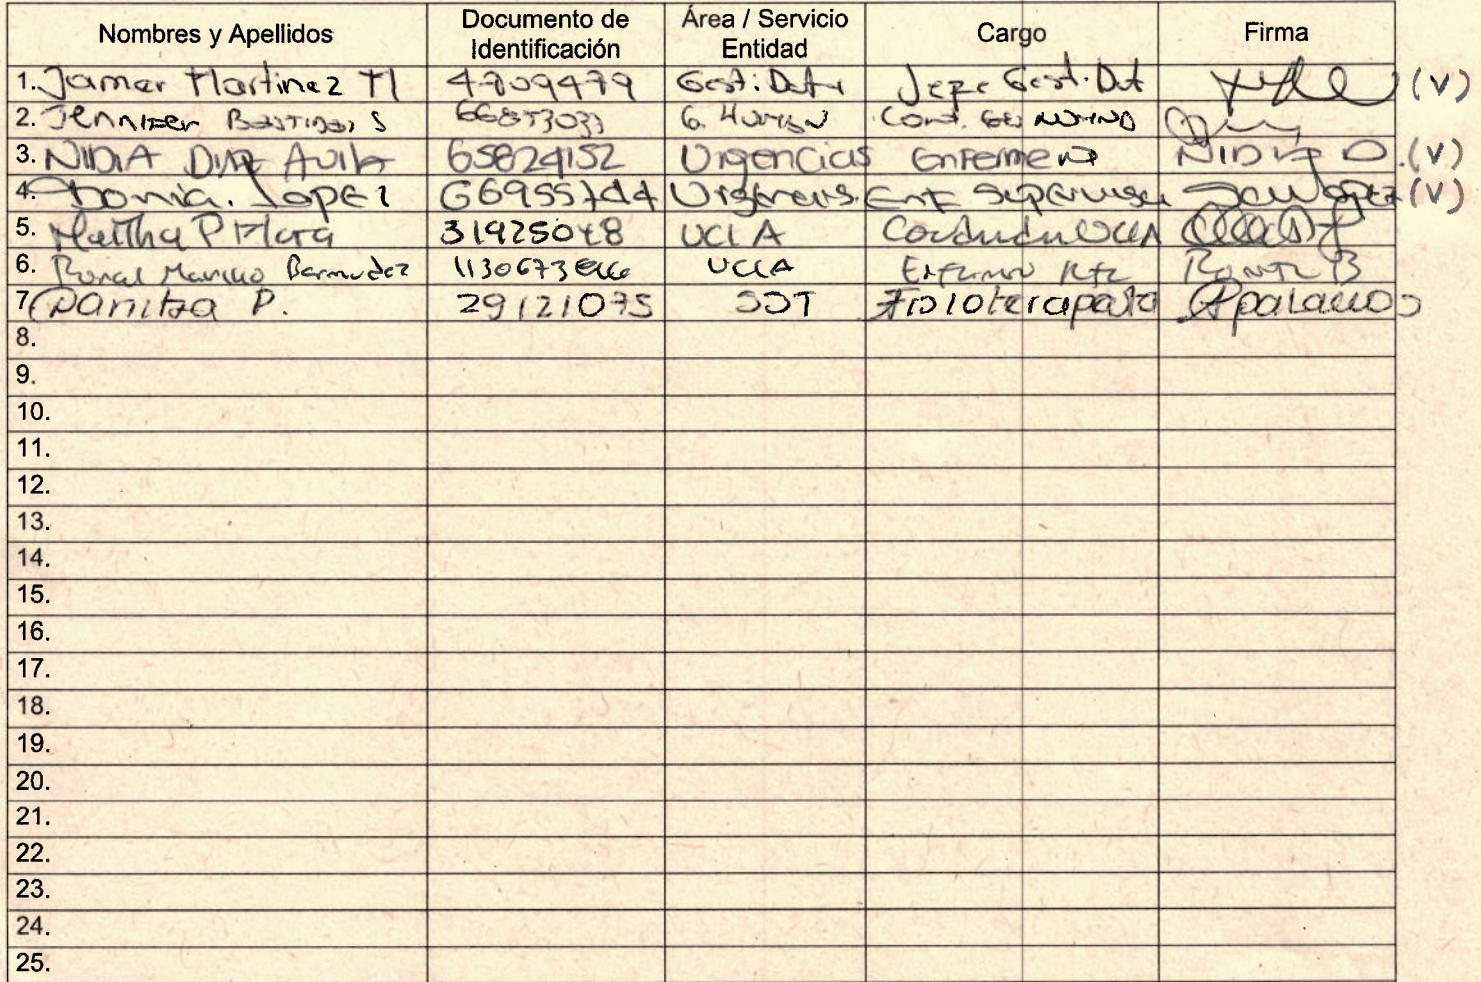 Nombres y Apellidos Documento de Identificación Área / Servicio Entidad Cargo Firma
1. Jamar Martinez M 4709479 Gest. Dato Jefe Gest. Dat (V)
2. Jennifer Bastidas S 66873033 G. Humano Cord. Ges Humano
3. NIDIA DIAZ AVILA 65829152 Urgencias Enfermera NIDIA D. (V)
4. Sonia. Lopez 66955744 Urgencias. Enf Supervisor (V)
5. Martha P Mora 31925048 UCIA
6. Ronal Bermudez UCIA
7. Danitza P. 29121075 SDT Fisioterapeuta
8.
9.
10.
11.
12.
13.
14.
15.
16.
17.
18.
19.
20.
21.
22.
23.
24.
25.